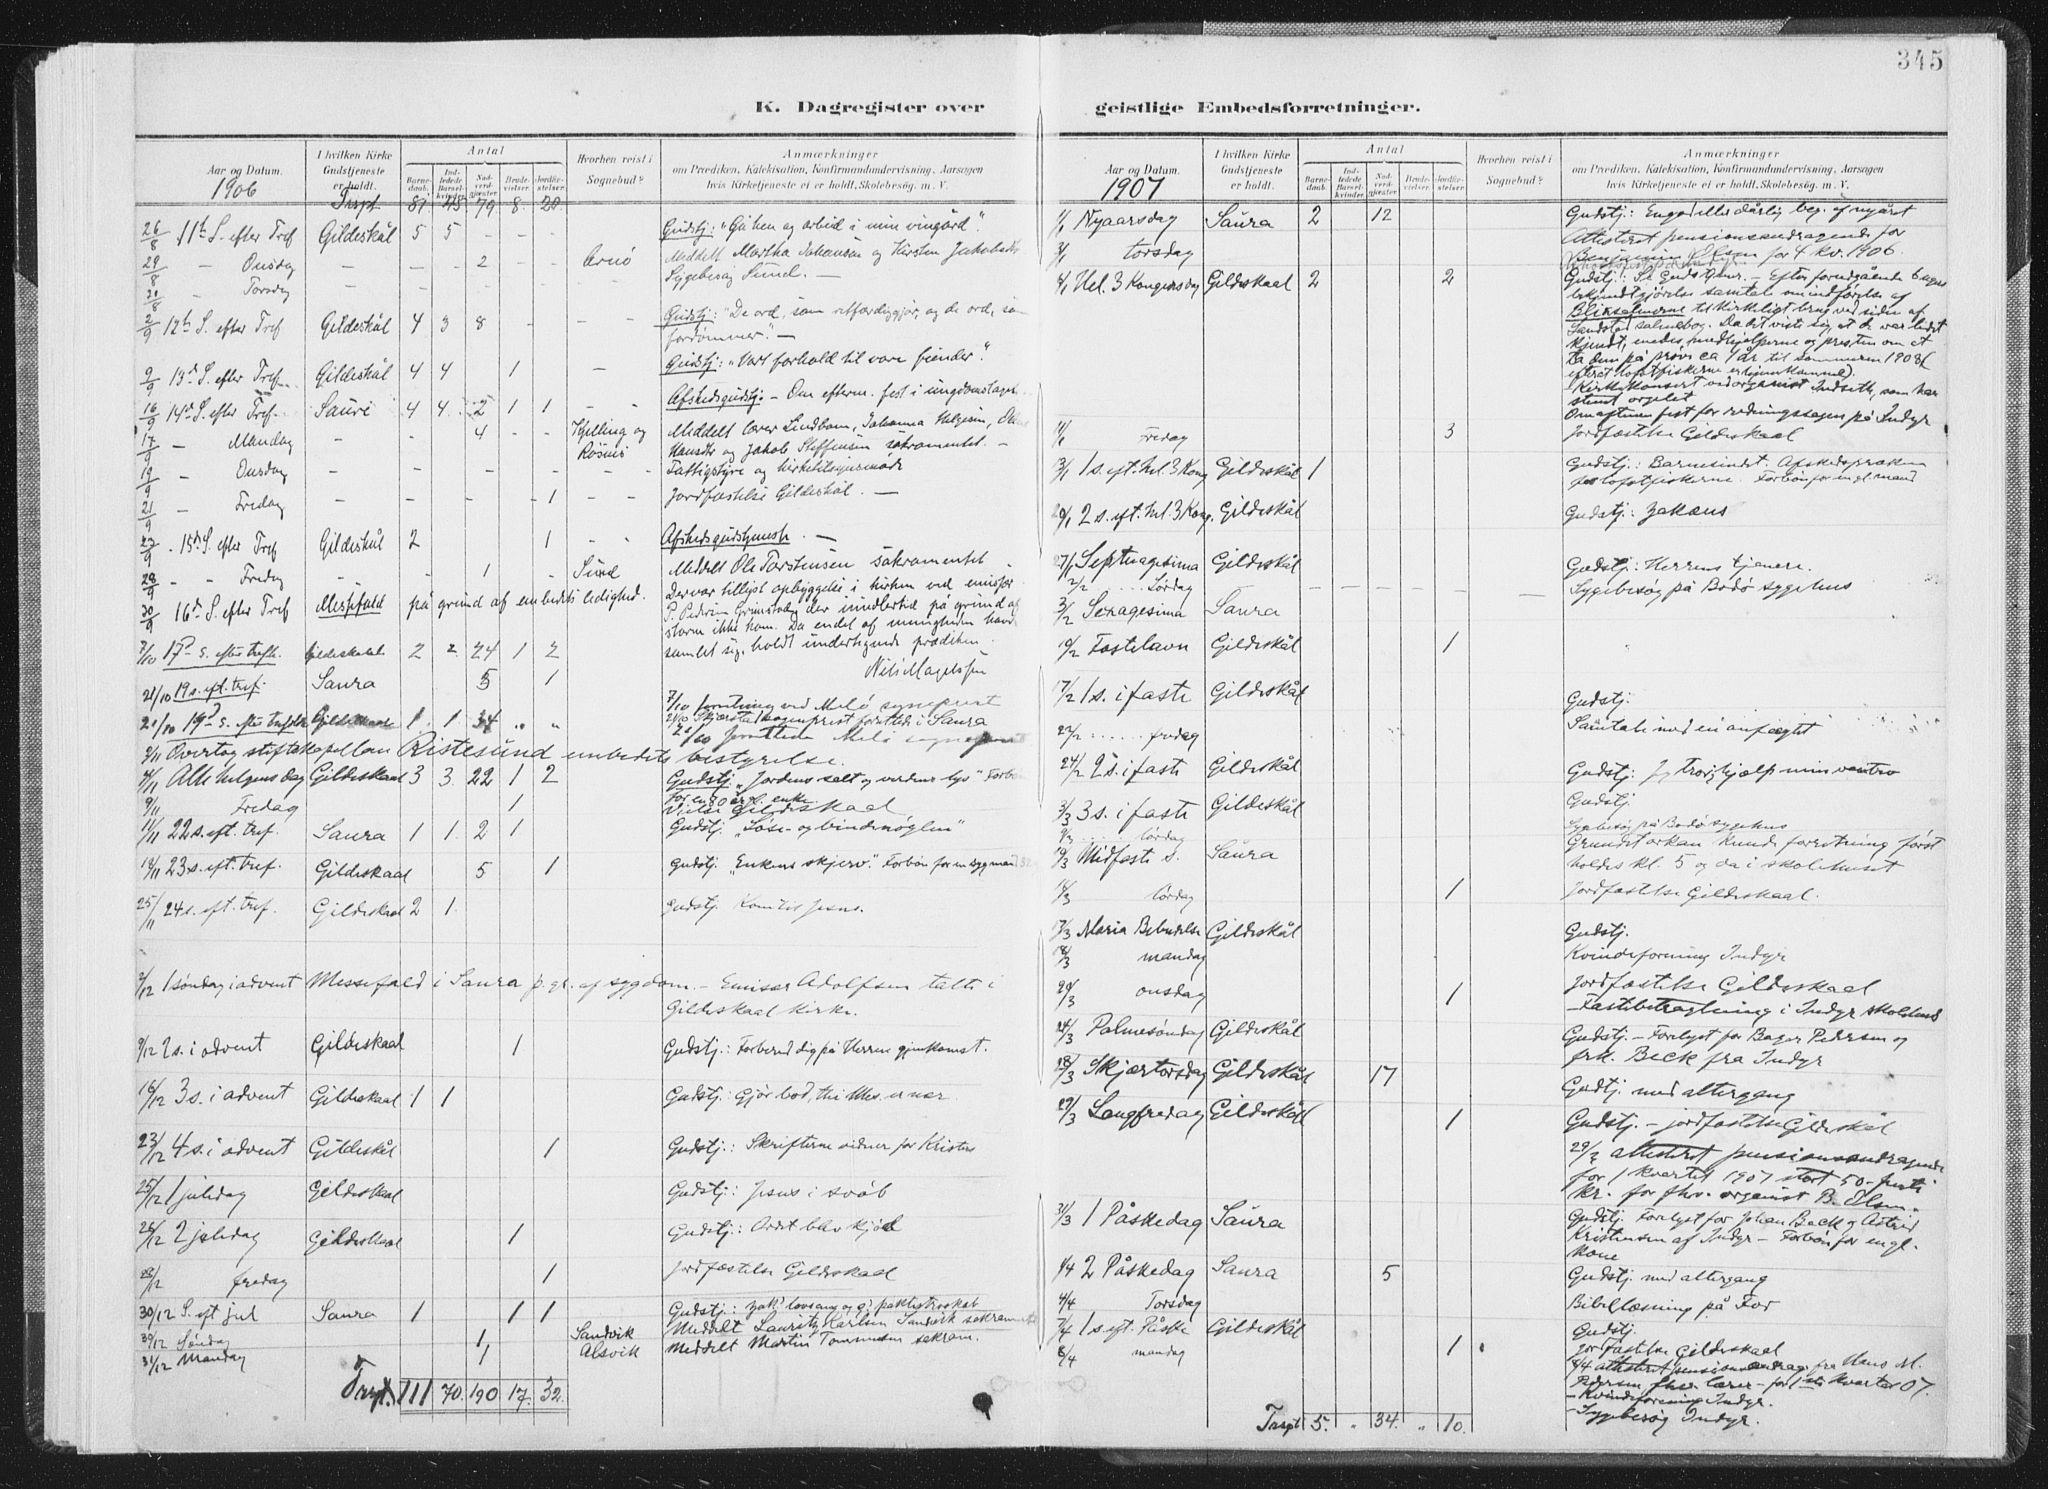 345
K. Dagregister over
geistlige Embedsforretninger.
Aar og Datum.
I hvilken Kirke Gudstjeneste er holdt.
Antal
Barne-daab. Ind-ledede Barsel-kvinder. Nad-verd-gjester. Brude-vielser. Jordfæ-stelser.
Hvorhen reist i Sognebud?
Anmærkninger
om Prædiken, Katekisation, Konfirmandundervisning, Aarsagen
hvis Kirketjeneste ei er holdt, Skolebesøg. m. V.
1906 Trspt 8 20
26/8 11te S. efter Tref Gildeskål 5 5 - - - Gudstj: "Gå hen og arbeid i min vingård".
29/8 - Onsdag - - - 2 - - Arnö Meddelt Martha Johansen og Kirsten
- Torsdag - - - - Sygebesøg Sund. -
2/9 12te S. efter Tref Gildeskål 4 3 8 - - - Gudstj: "De ord, som retfærdiggjør, og de ord, som
fordømmer". -
9/9 13de S. efter Tref. Gildeskål 4 4 1 - Gudstj: "Vort forhold til vore fiender".
16/9 14de S. efter Tref. 4 4 2 1 1 - - Afskedsgudstj. - Om efterm. fest i ungdomslaget.
17/9 - Mandag - - 4 - - Kjelling og Meddelt lærer Lindbom, Johanna Helgesen,
og Jakob Steffensen sakramentet. -
19/9 - Onsdag - - - - - - Fattigstyre og
21/9 - Fredag - - - - 1 - - Jordfæstelse Gildeskål. -
23/9 15de S. efter Tref Gildeskål 2 1 - - Afskedsgudstjeneste. -
28/9 - - Fredag - - - 1 - - Sund Meddelt Ole Torstensen sakramentet
30/9 16de S. efter Tref Messfald på grund af embedets ledighed. Der var tilligst opbyggelse i kirken ved emissær
P. Pedersen Grimstad der imidlertid på grund af
storm ikke kom. Da endel af menigheden havde
samlet sig, holdt undertegnede prædiken.
Nils Magelssen
7/10 17de s. efter trefh. Gildeskaal 2 2 24 1 2
21/10 19 s. eft. tref. Saura 5 1 7/10 forretning ved Melø sogneprest
21/10 19de s. efter trefoldh. Gildeskaal 1 1 34 " " 21/10 Skjerstad sogneprest forrettede i Saura
2/11 Overtog stiftskapellan Ristesund embedets bestyrelse.
4/11 Alle helgens dag Gildeskaal 3 3 22 1 2 Gudstj. "Jordens salt og verdens lys" Forbøn
for en 80 årg. enke
9/11 Fredag 1 Vielse Gildeskaal
11/11 22 s. eft. tref. Saura 1 1 2 1 Gudstj. "Løse- og bindenøglen"
18/11 23 s. eft. tref. Gildeskaal 5 1 Gudstj. "Enkens skjerv". Forbøn for en syg mand
25/11 24 s. eft. tref. Gildeskaal 2 1 Gudstj. Kom til Jesus.
2/12 1 søndag i advent Messefald i Saura p. gr. af sygdom. - Emisær Adolfsen talte i
Gildeskaal kirke.
9/12 2 s. i advent Gildeskaal 1 Gudstj.: Forbered dig på Herrens gjenkomst.
16/12 3 s. i advent Gildeskaal 1 1 Gudstj.: Gjør bod, thi Mes. er nær.
23/12 4 s. i advent Gildeskål 1 Gudstj.: Skrifterne vidner for Kristus
25/12 1 juledag Gildeskaal Gudstj.: Jesus i svøb
26/12 2 juledag Gildeskaal 1 Gudstj.: Ordet blev kjød
28/12 fredag 1 Jordfæstelse Gildeskaal
30/12 S. eft jul Saura 1 1 1 Gudstj.: Zak' lovsang og
30/12 Søndag 1 Sandvik Meddelt Lauritz Karlsen Sandvik sakrament
31/12 Mandag 1 Alsvik Meddelt Martin Tommesen sakram.
Trspt. 111 70. 190 17. 32.
Aar og Datum.
I hvilken Kirke Gudstjeneste er holdt.
Antal
Barne-daab. Ind-ledede Barsel-kvinder. Nad-verd-gjester. Brude-vielser. Jordfæ-stelser.
Hvorhen reist i Sognebud?
Anmærkninger
om Prædiken, Katekisation, Konfirmandundervisning, Aarsagen
hvis Kirketjeneste ei er holdt, Skolebesøg. m. V.
1907
1/1 Nyaarsdag Saura 2 12 Gudstj.: En god eller dårlig beg. af nyåret
3/1 torsdag Attesteret pensionsandragende for
Benjamin Olsen for 4 kv. 1906.
6/1 Hel. 3 Kongersdag Gildeskaal 2 2 Gudstj.: Se Guds - Efter forudgående 6 ugers
bekjendtgjørelse samtale om indførelse af
Blixsalmerne til kirkeligt brug ved siden af
Landstad salmebog. Da det viste sig, at de var lidet
kjendt, enedes medhjelperne og presten om at
ta dem på prøve ca 1 år til sommeren 1908 (
efterat lofotfiskerne er hjemkomne).
Kirkekonsert ved organist Indseth, som har
stemt orgelet
Om aftenen fest for redningssagen på Indyr
11/1 Fredag 3 Jordfæstelse Gildeskaal
13/1 1 s. eft. hel. 3 Kong Gildeskål 1 Gudstj.: Barnesindet. Afskedspræken
for lofotfiskerne. Forbøn for en gl. mand
20/1 2 s. eft. hel. 3 Kong. Gildeskål Gudstj.: Zakæus
27/1 Septuagesima Gildeskål Gudstj.: Herrens tjenere.
2/2 Lördag Sygebesøg på Bodø sygehus
3/2 Sexagesima Saura
10/2 Fastelavn Gildeskål 1
17/2 1 s. i faste Gildeskål Gudstj.
22/2 fredag Samtale med en anfægtet
24/2 2 s. i faste Gildeskål Gudstj.: Jeg tror, hjælp min vantro
3/3 3 s. i faste Gildeskål Gudstj.
9/3 lördag Sygebesøg på Bodø sygehus
10/3 Midfaste s. Saura Grundet orkan kunde forretning først
holdes kl. 5 og da i skolehuset
16/3 lördag 1 Jordfæstelse Gildeskaal.
17/3 Maria Bebudelse Gildeskål Gudstj.
18/3 mandag Kvindeforening Indyr
20/3 onsdag 1 Jordfæstelse Gildeskaal
- Fastebetragtning i Indyr skolehus
24/3 Palmesöndag Gildeskål Gudstj. - Forelyst for Bager Pedersen og
frk. Beck fra Indyr
28/3 Skjærtorsdag Gildeskål 17 Gudstj. med altergang
29/3 Langfredag Gildeskål 1 Gudstj. - jordfæstelse Gildeskål
29/3 attesteret pensionsandragende
for 1 kvartal 1907 stort 50 - femti
kr. for fhv. organist B. Olsen.
31/3 1 Påskedag Saura Gudstj. Forelyst for Johan Beck og Astrid
Kristensen af Indyr - Forbøn for en gl.
kone
1/4 2 Påskedag Saura 5 Gudstj. med altergang
4/4 Torsdag Bibellæsning på For
7/4 1 s. eft. Påske Gildeskål Gudstj.
8/4 mandag 1 Jordfæstelse Gildeskaal
8/4 attesteret pensionsandrag. fra Hans M.
Pedersen fhv. lærer - for 1ste kvartal 07.
- Kvindeforening Indyr.
- Sygebesøg Indyr.
Trspt 5. " 34. " 10.